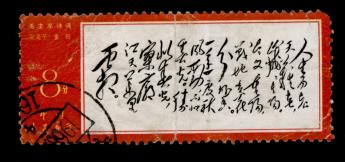 毛主席诗词
采桑子·重阳
8分
人生易老
天难老岁岁
重阳今又重阳
战地黄花
分外香
一年一度秋
风劲不似
春光胜似
春光
寥廓
江天万里
霜